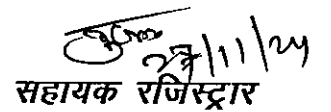 27/11/24
सहायक रजिस्ट्रार